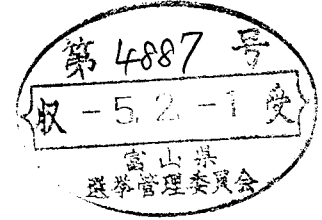 第 4887 号
収 -5.2.-1 受
富山県
選挙管理委員会